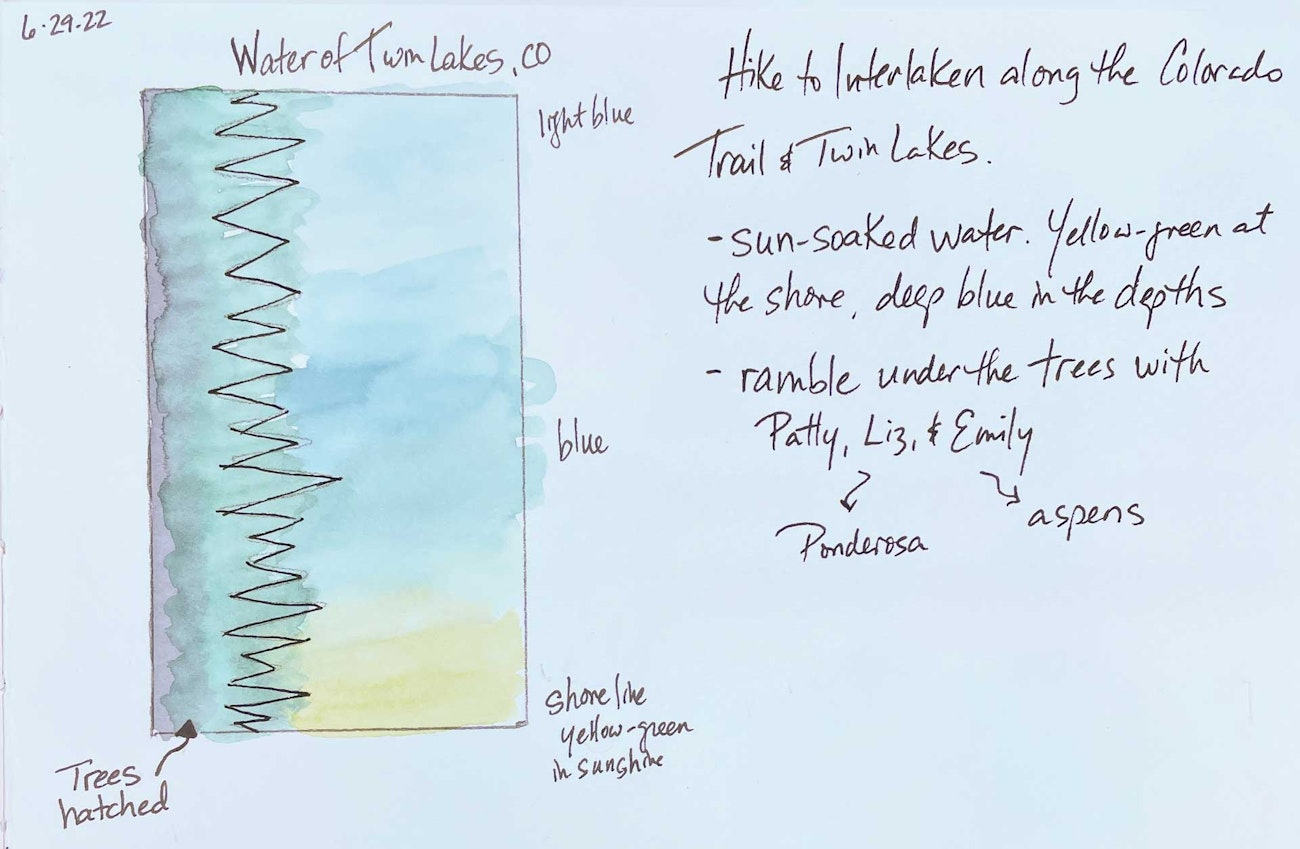 6·29·22
Water of Twin Lakes, CO
light blue
blue
shoreline
yellow-green
in sunshine
Trees
hatched
Hike to Interlaken along the Colorado
Trail & Twin Lakes.
- sun-soaked water. Yellow-green at
the shore, deep blue in the depths
- ramble under the trees with
Patty, Liz, & Emily
Ponderosa
aspens